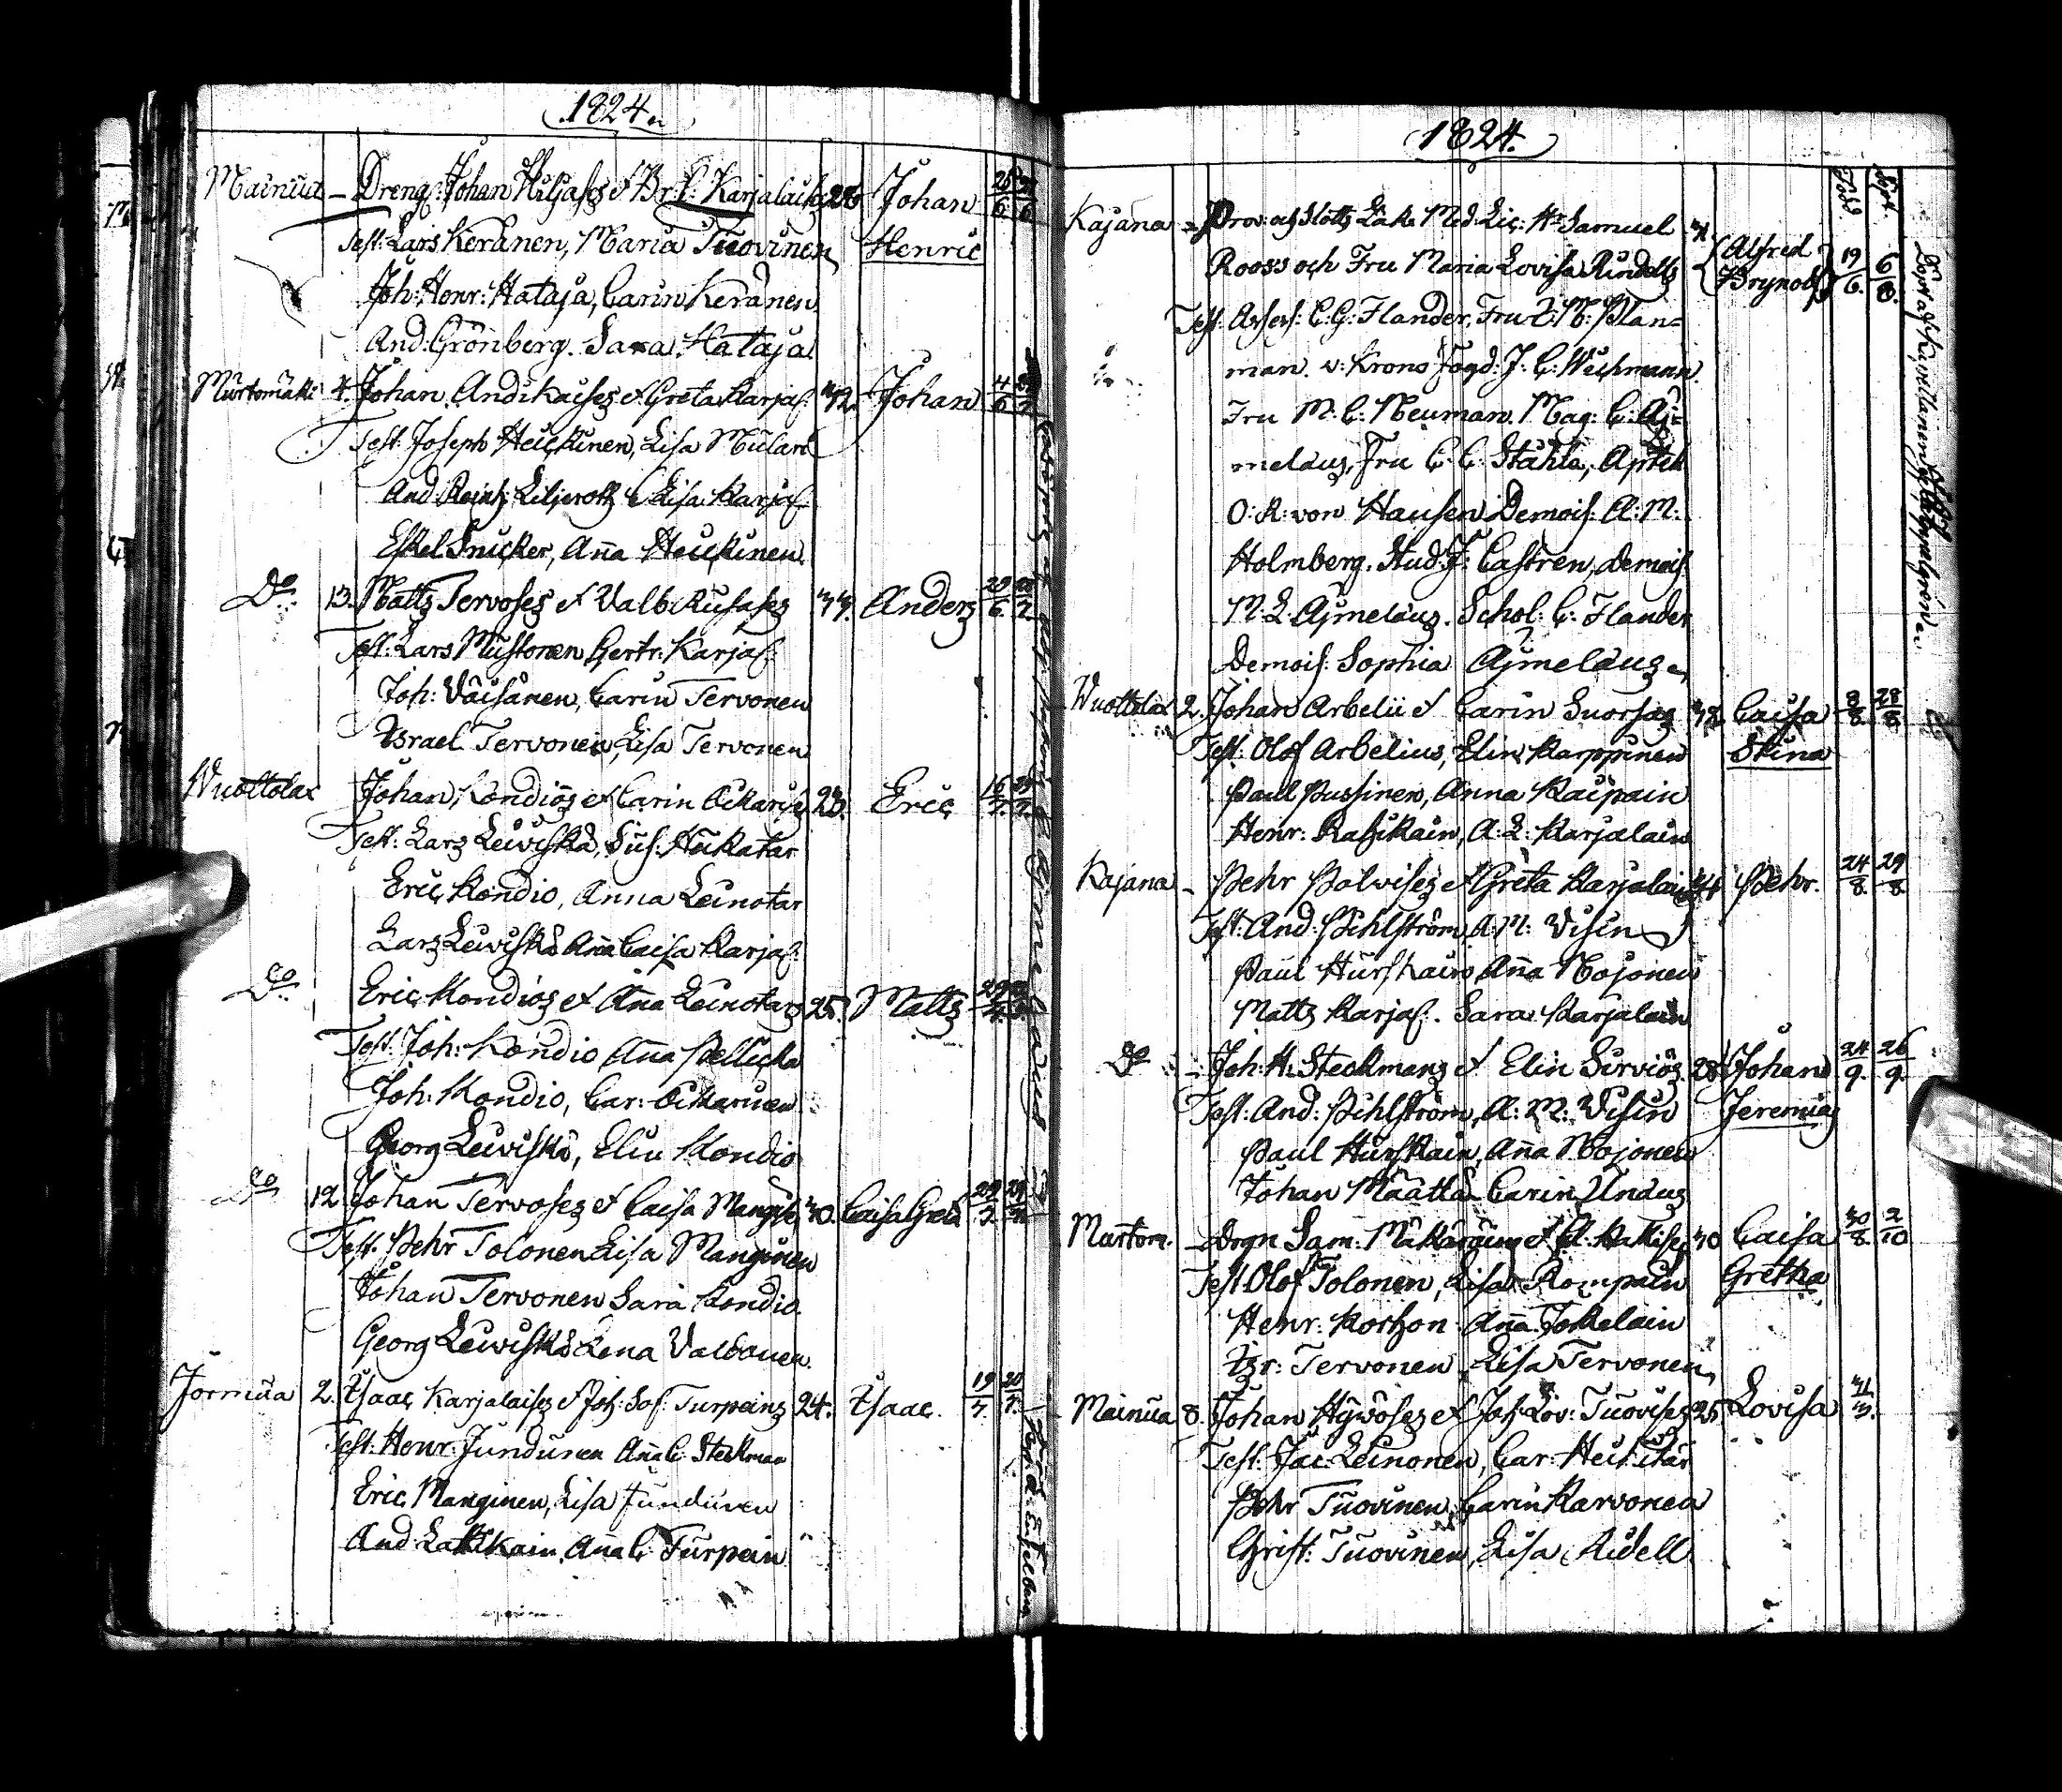 1824.
Mainua – Dreng: Johan Kiljases et Br: C: Karjalais 28 Johan 26/6 27/6
Test: Lars Keränen, Maria Tuovinen Henric
Joh: Henr: Hataja, Carin Keränen
And: Grönberg. Sara Hataja
Murtomäki 4. Johan Andikaises et Greta Karjal: 42. Johan 4/6
Test: Joseph Heickinen, Lisa Mulari
And: Reinh: Liljeroth, Lisa Karjal:
Eskel Snicker, Anna Heickinen
Do 13. Matts Tervoses et Valb: Rusases 44. Anders 29/6
Test: Lars Mustonen Gertr: Karjal:
Joh: Väisänen, Carin Tervonen
Israel Tervonen, Lisa Tervonen
Wuottolax Johan Kondiös et Carin Ockarin 23. Eric 16/7
Test: Lars Lewiskä, Sus: Heikatar
Eric Kondio, Anna Leinotar
Lars Lewiskä Anna Caisa Karjal:
Do Eric Kondios et Anna Leinotars 25. Matts 29/7
Test: Joh: Kondio Anna Pellicka
Joh: Kondio, Car: Ockaruen
Georg Lewiskä, Elin Kondio
Do 12. Johan Tervoses et Caisa Mangis 30. Caisa Greta 29/7
Test: Pehr Tolonen Lisa Manginen
Johan Tervonen Sara Kondio
Georg Lewiskä Lena Valtonen
Jormua 2. Isaac Karjalaises et Joh: Sof: Turpeins 24. Isaac. 19/7 20/7
Test: Henr: Jundunen Anna C: Steckman
Eric Manginen, Lisa Jundunen
And: Latikkain Anna C. Turpein
1824.
Född Döpt.
Kajana – Prov: och Slotts Läk: Med: Lic: Hr Samuel 41.
Rooss och Fru Maria Lovisa Rindells Alfred Brynolf 19/6. 6/8.
Test: Assess: C: G: Flander, Fru C: M: Plan=
man. v: Krono Fogd: J: C: Wichmann
Fru M: C: Neuman. Mag: C: Aj=
melæus, Fru C: C: Ståhle, Aptek:
O: R: von Hausen Demois: A: M:
Holmberg. Stud: J: Castren, Demois:
M: L: Ajmelæus. Schol: C: Flander
Demois: Sophia Ajmelæus
Wuottolax 2. Johan Arbelii et Carin Suorsas 42. Caisa 8/8. 28/8.
Test: Olof Arbelius, Elin Karppinen Stina
Paul Pussinen, Anna Kaipain
Henr: Rasikain, A: L: Karjalain
Kajana – Pehr Polvises et Greta Karjalais 41 Pehr. 24/8. 29/8.
Test: And: Pihlström, A: M: Visin
Paul Hurskain Anna Mojonen
Matts Karjal. Sara Karjalain
Do – Joh: H: Steckmans et Elin Sirviös 28 Johan 24/9. 26/9.
Test: And: Pihlström, A: M: Visin Jeremias
Paul Hurskain, Anna Mojonen
Johan Määttä Carin Undus
Murtom. – Drgn Sam: Mäkäräines et El: Kakises 40 Caisa 30/8. 2/10
Test: Olof Tolonen, Lisa Rompain Gretha
Henr: Korhon. Anna Jokelain
Isr: Tervonen, Lisa Tervonen
Mainua 8. Johan Hÿwöses et Joh: Lov: Tuovises 25. Lovisa 31/3.
Test: Jac: Leinonen, Car: Heikitär
Pehr Tuovinen, Carin Karvonen
Christ: Tuovinen, Lisa Ridell